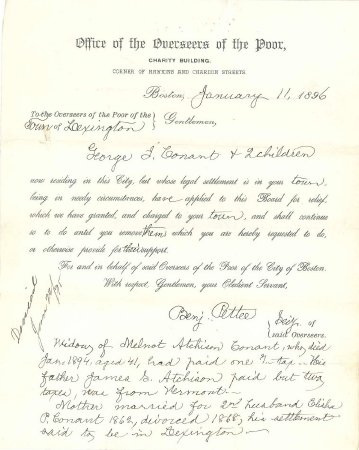 Office of the Overseers of the Poor,
CHARITY BUILDING,
CORNER OF HAWKINS AND CHARDON STREETS
Boston, January 11, 1896
To the Overseers of the Poor of the
Town of Lexington
Gentlemen,
George I. Conant & 2 children
now residing in this City, but whose legal settlement is in your town,
being in needy circumstances, have applied to this Board for relief,
which we have granted, and charged to your town, and shall continue
so to do until you remove them which you are hereby requested to do,
or otherwise provide for their support.
For and in behalf of said Overseers of the Poor of the City of Boston.
With respect, Gentlemen, your Obedient Servant,
Benj. Pettee
Sec'y of
said Overseers.
Widow of Melnot Atchison Conant, who died
Jan. 1894, aged 41, had paid one tax. His
father James E. Atchison paid but two
taxes, was from Vermont.
Mother married for 2nd husband Elisha
P. Conant 1862, divorced 1868, his settlement
said to be in Lexington